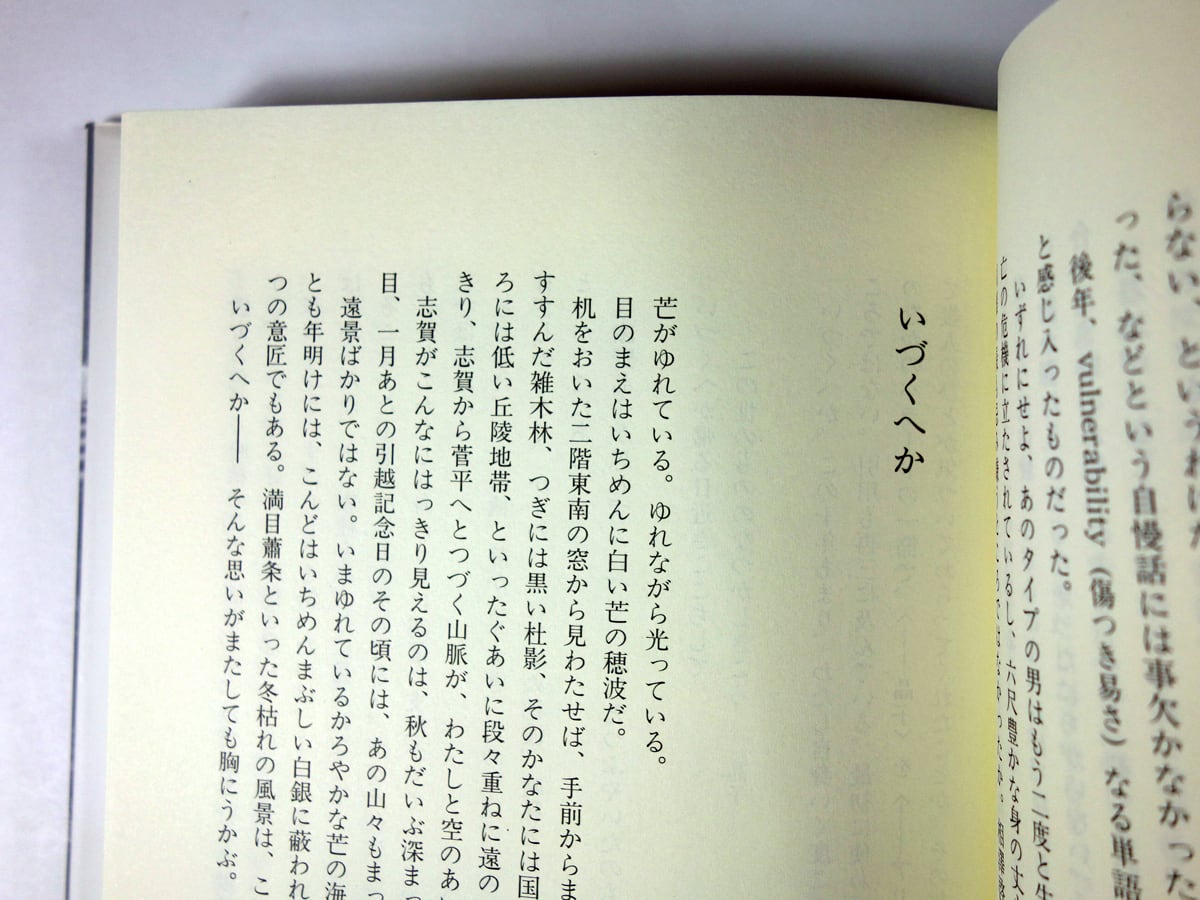 らない、という
った、などという自慢話には事欠かなかった
後年、vulnerability(傷つき易さ)なる単語
と感じ入ったものだった。
いずれにせよ、あのタイプの男はもう二度と生
亡の危機に立たされているし、六尺豊かな身の丈
いづくへか
芒がゆれている。ゆれながら光っている。
目のまえはいちめんに白い芒の穂波だ。
机をおいた二階東南の窓から見わたせば、手前からま
すすんだ雑木林、つぎには黒い杜影、そのかなたには国
ろには低い丘陵地帯、といったぐあいに段々重ねに遠の
きり、志賀から菅平へとつづく山脈が、わたしと空のあ
志賀がこんなにはっきり見えるのは、秋もだいぶ深まっ
目、一月あとの引越記念日のその頃には、あの山々もまっ
遠景ばかりではない。いまゆれているかろやかな芒の海
とも年明けには、こんどはいちめんまぶしい白銀に蔽われ
つの意匠でもある。満目蕭条といった冬枯れの風景は、こ
いづくへか――そんな思いがまたしても胸にうかぶ。